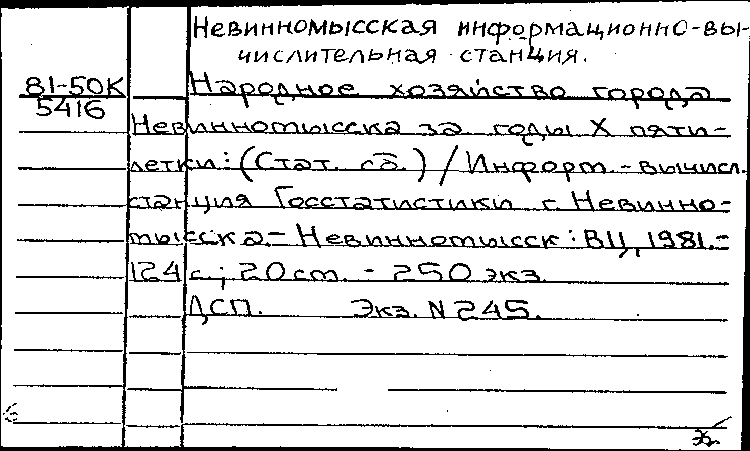 Невинномысская информационно-вы-
числительная станция.
81-50К
5416
Народное хозяйство города
Невинномысска за годы X пяти-
летки: (Стат. сб.) / Информ.-вычисл.
станция Госстатистики г. Невинно-
мысска.- Невинномысск: ВЦ, 1981.-
124 с.; 20 см. - 250 экз.
ДСП. Экз. N 245.